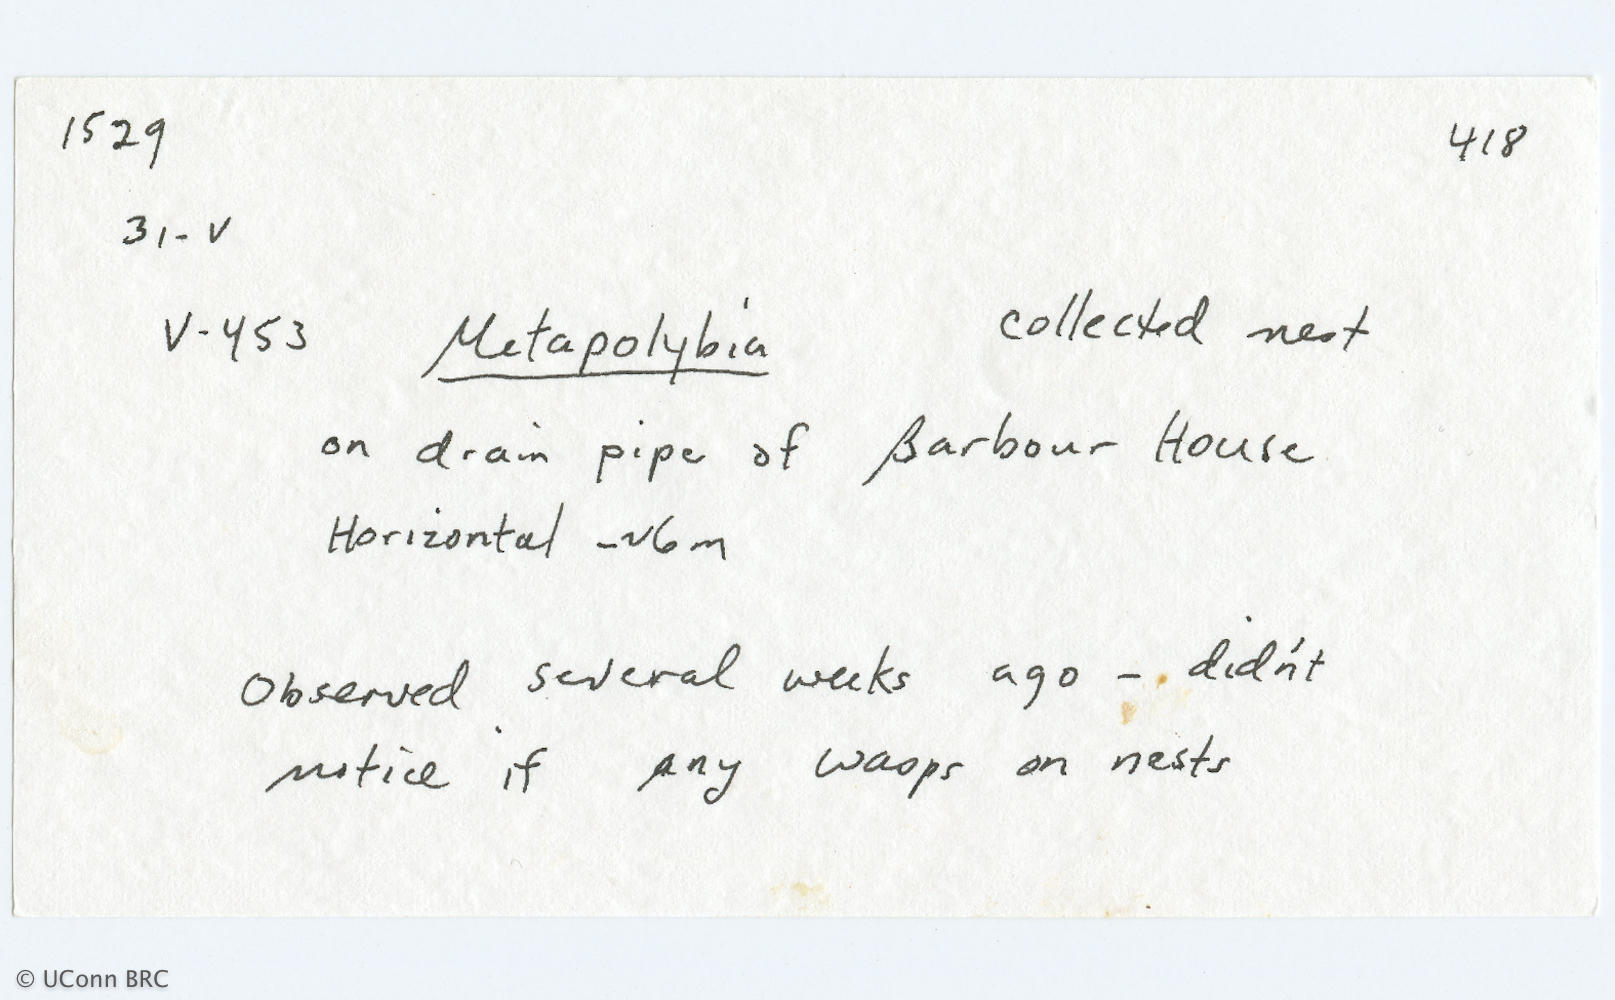 1529 418
31-V
V-453 Metapolybia collected nest
on drain pipe of Barbour House
Horizontal -~6m
Observed several weeks ago - didn't
notice if any wasps on nests
© UConn BRC